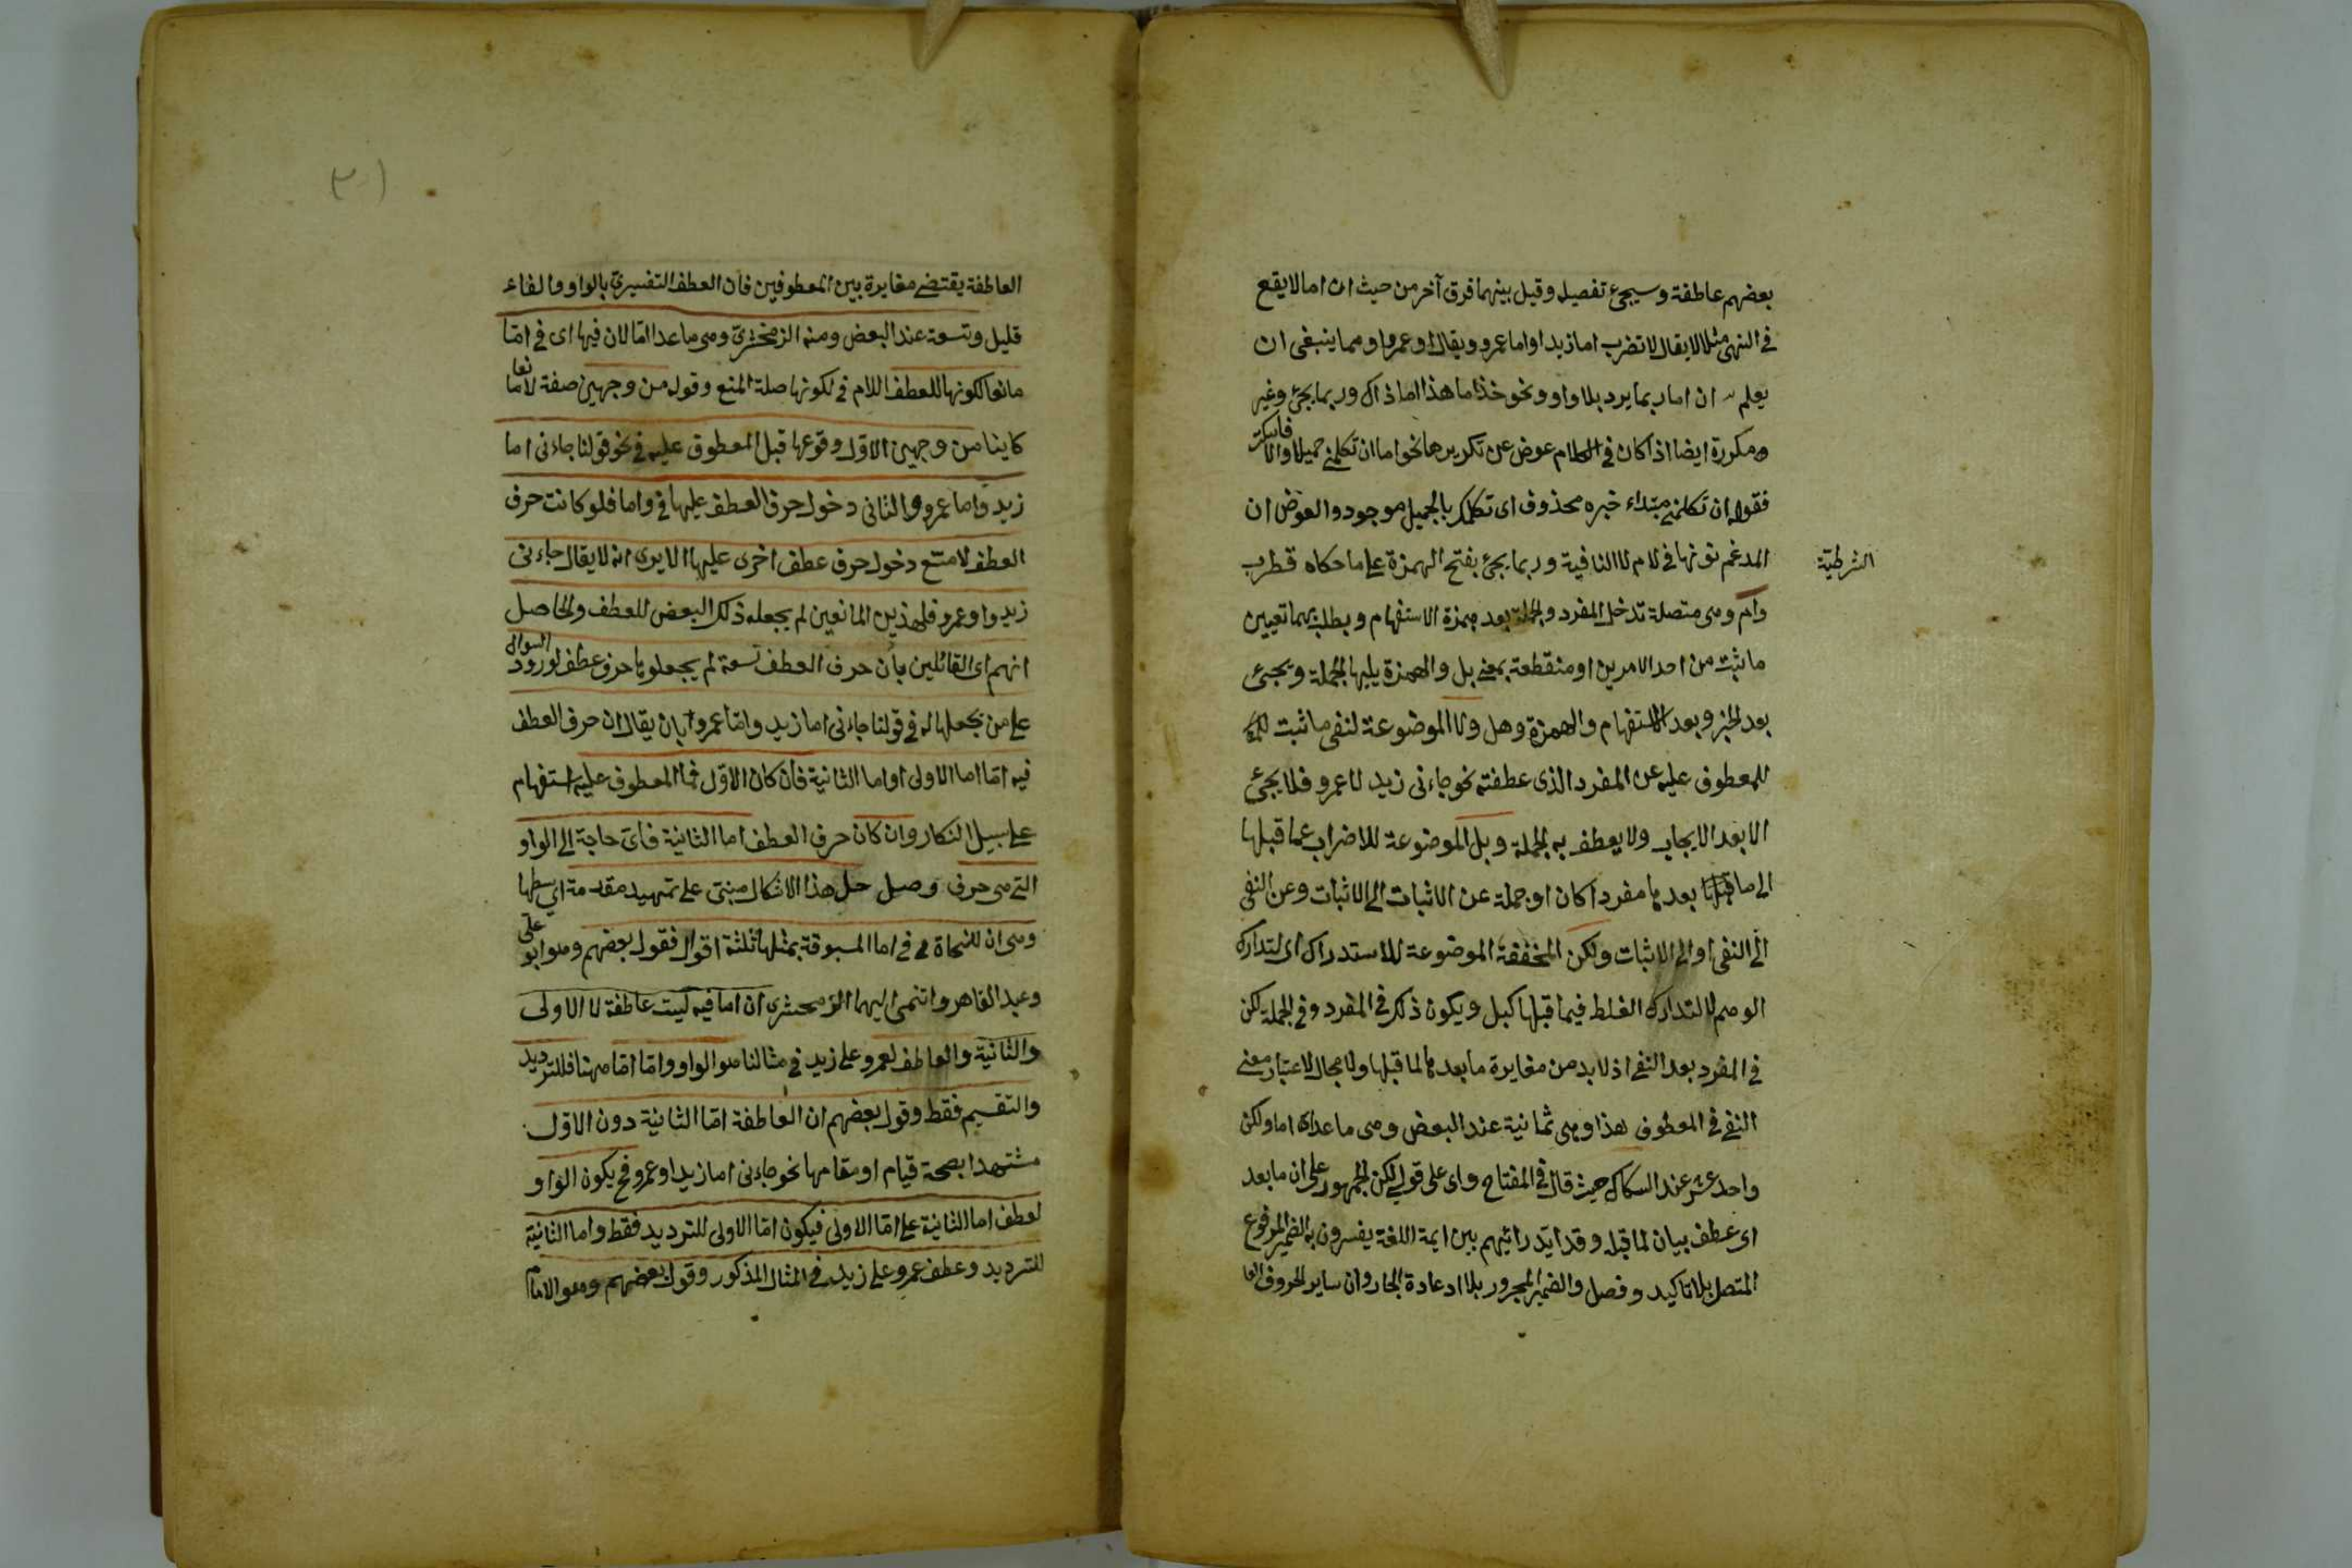 بعضهم عاطفة وسيجئ تفصيله وقيل بينهما فرق آخر من حيث ان اما لا يقع
في النهى مثلا لا يقال لا تضرب اما زيدا واما عمرو ويقال او عمروا ومما ينبغى ان
يعلم ان اما ربما يرد بلا واو ونحو خذ اما هذا اما ذاك وربما يجئ وغير
ومكررة ايضا اذا كان في الكلام عوض عن تكريرها نحو اما ان تكلمنى جميلا والا فاسكت
فقوله ان تكلمنى مبتداء خبره محذوف اى تكلمك بالجميل موجود والعوض ان
الشرطية
المدغم نونها في لام لا النافية وربما يجئ بفتح الهمزة على ما حكاه قطرب
وام وهى متصلة تدخل المفرد والجملة بعد همزة الاستفهام ويطلب بهما تعيين
ما ثبت من احد الامرين او منقطعة بمعنى بل والهمزة يليها الجملة ويجئ
بعد الخبر وبعد الاستفهام والهمزة وهل ولا الموضوعة لنفى ما ثبت
للمعطوف عليه عن المفرد الذى عطفته نحو جاءنى زيد لا عمرو فلا يجئ
الا بعد الايجاب ولا يعطف به الجملة وبل الموضوعة للاضراب عما قبلها
الى ما بعدها مفردا كان او جملة عن الاثبات الى الاثبات وعن النفى
الى النفى او الى الاثبات ولكن المخففة الموضوعة للاستدراك اى لتدارك
الوهم لا لتدارك الغلط فيما قبلها كبل ويكون ذلك في المفرد وفي الجملة لكن
في المفرد بعد النفى اذ لا بد من مغايرة ما بعدها لما قبلها ولا مجال لاعتبار معنى
النفى في المعطوف هذا وهى ثمانية عند البعض وهى ما عدا اما ولكن
واحد عشر عند السكاكى حيث قال في المفتاح واى على قولى لكن الجمهور على ان ما بعد
اى عطف بيان لما قبله وقد ايد رائيهم بين ايمة اللغة يفسرون به الضمير المرفوع
المتصل بلا تاكيد وفصل والضمير المجرور بلا اعادة الجار وان ساير الحروف العا
٣١
العاطفة يقتضى مغايرة بين المعطوفين فان العطف التفسيرى بالواو والفاء
قليل وتسعة عند البعض ومنه الزمخشرى وهى ما عدا اما لان فيها اى في اما
مانعا لكونها للعطف اللام في لكونها صلة المنع وقوله من وجهين صفة لا مانعا
كاينا من وجهين الاول وقوعها قبل المعطوف عليه في نحو قولنا جاءنى اما
زيد واما عمرو والثانى دخول حرف العطف عليها في واما فلو كانت حرف
العطف لامتنع دخول حرف عطف اخرى عليها الا يرى انه لا يقال جاءنى
زيد واو عمرو فلهذين المانعين لم يجعله ذلك البعض للعطف والحاصل
انهم اى القائلين بان حرف العطف تسعة لم يجعلوها حرف عطف لورود السوال
على من يجعلها له في قولنا جاءنى اما زيد واما عمروا بان يقال ان حرف العطف
فيه اما اما الاولى او اما الثانية فان كان الاول فما المعطوف عليه استفهام
على سبيل انكار وان كان حرف العطف اما الثانية فاى حاجة الى الواو
التى هى حرف وصل حل هذا الاشكال مبنى على تمهيد مقدمة
وهى ان للنحاة في اما المسبوقة بمثلها ثلثة اقوال فقول بعضهم وهو ابو على
وعبد القاهر وانتمى اليهما الزمحشرى ان اما فيه ليت عاطفة لا الاولى
والثانية والعاطف لعمرو على زيد في مثالنا هو الواو واما اما ههنا فللترديد
والتقسيم فقط وقول بعضهم ان العاطفة اما الثانية دون الاول
مشتهدا بصحة قيام او مقامها نحو جاءنى اما زيد او عمرو فح يكون الواو
لعطف اما الثانية على اما الاولى فيكون اما الاولى للترديد فقط واما الثانية
للترديد وعطف عمرو على زيد في المثال المذكور وقول بعضهم وهو الامام